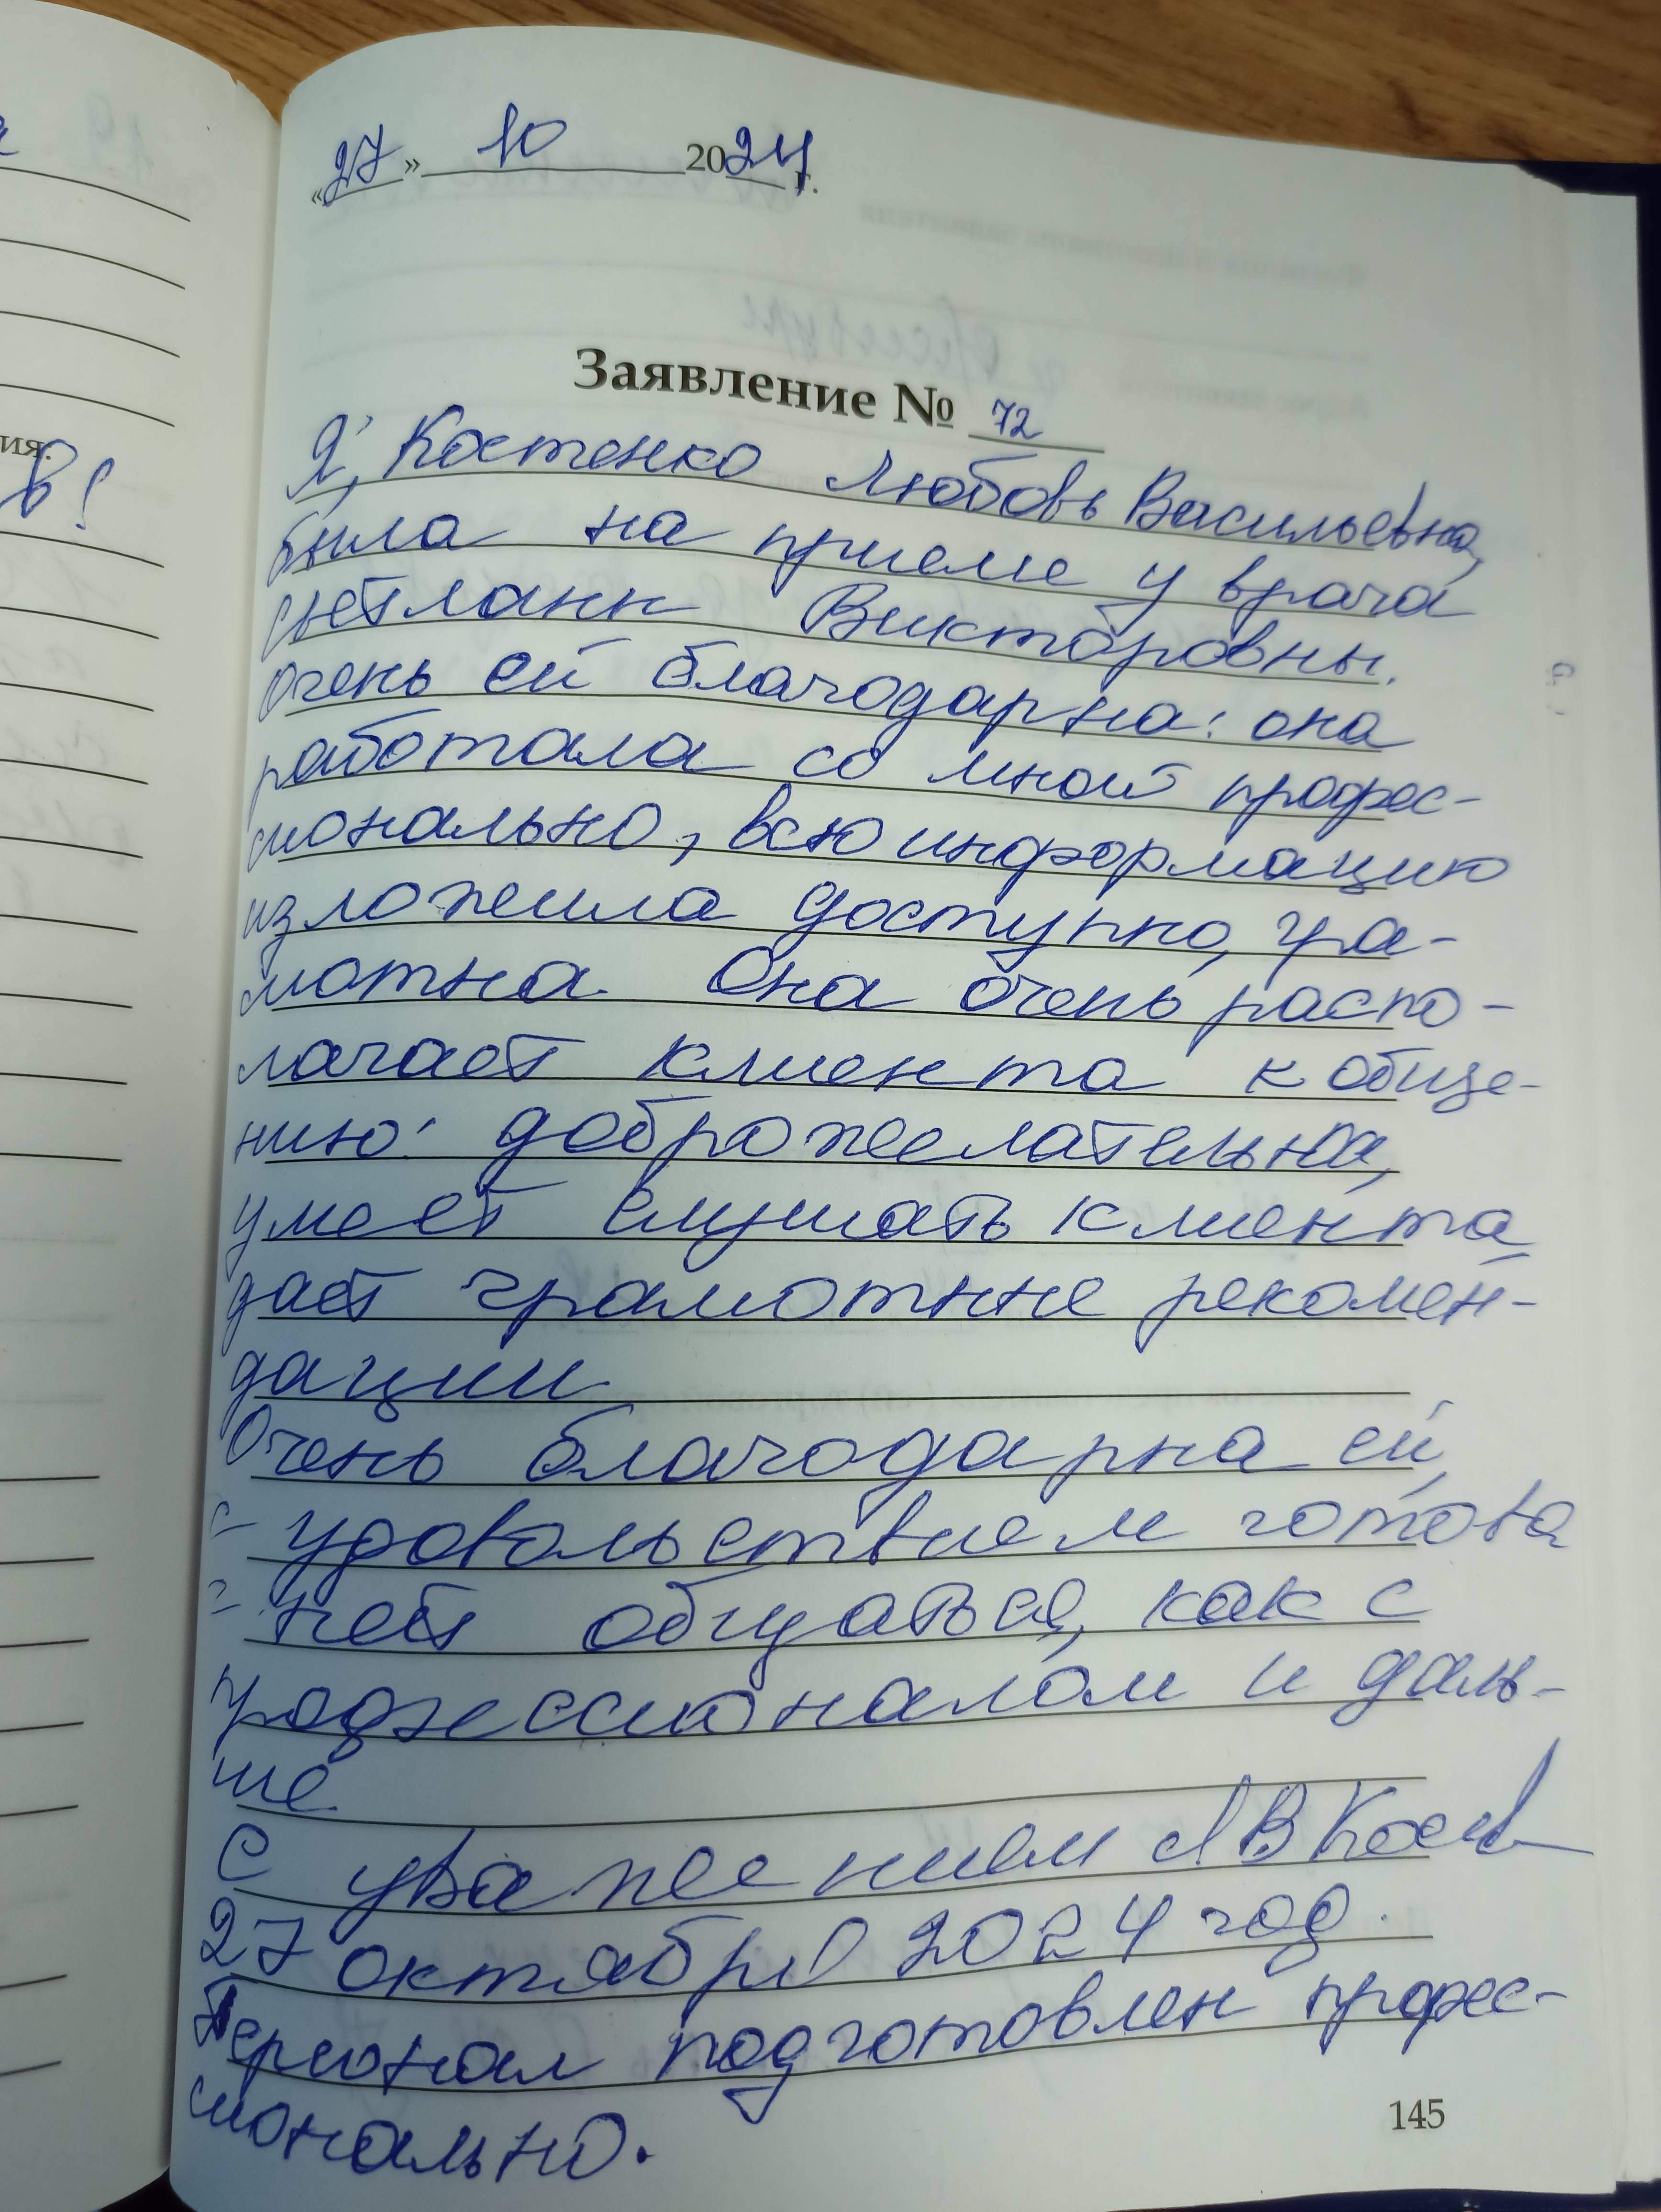 «27» 10 2024 г.
Заявление № 72
Я, Костенко Любовь Васильевна,
была на приеме у врача
Светланы Викторовны.
Очень ей благодарна: она
работала со мной профес-
сионально, всю информацию
изложила доступно, гра-
мотна. Она очень распо-
лагает клиента к обще-
нию: доброжелательна,
умеет слушать клиента,
дает грамотные рекомен-
дации
Очень благодарна ей,
с удовольствием готова
с ней общаться, как с
профессионалом и даль-
ше
С уважением ЛВ
27 октября 2024 год.
Персонал подготовлен профес-
сионально.
145
ия.
в!